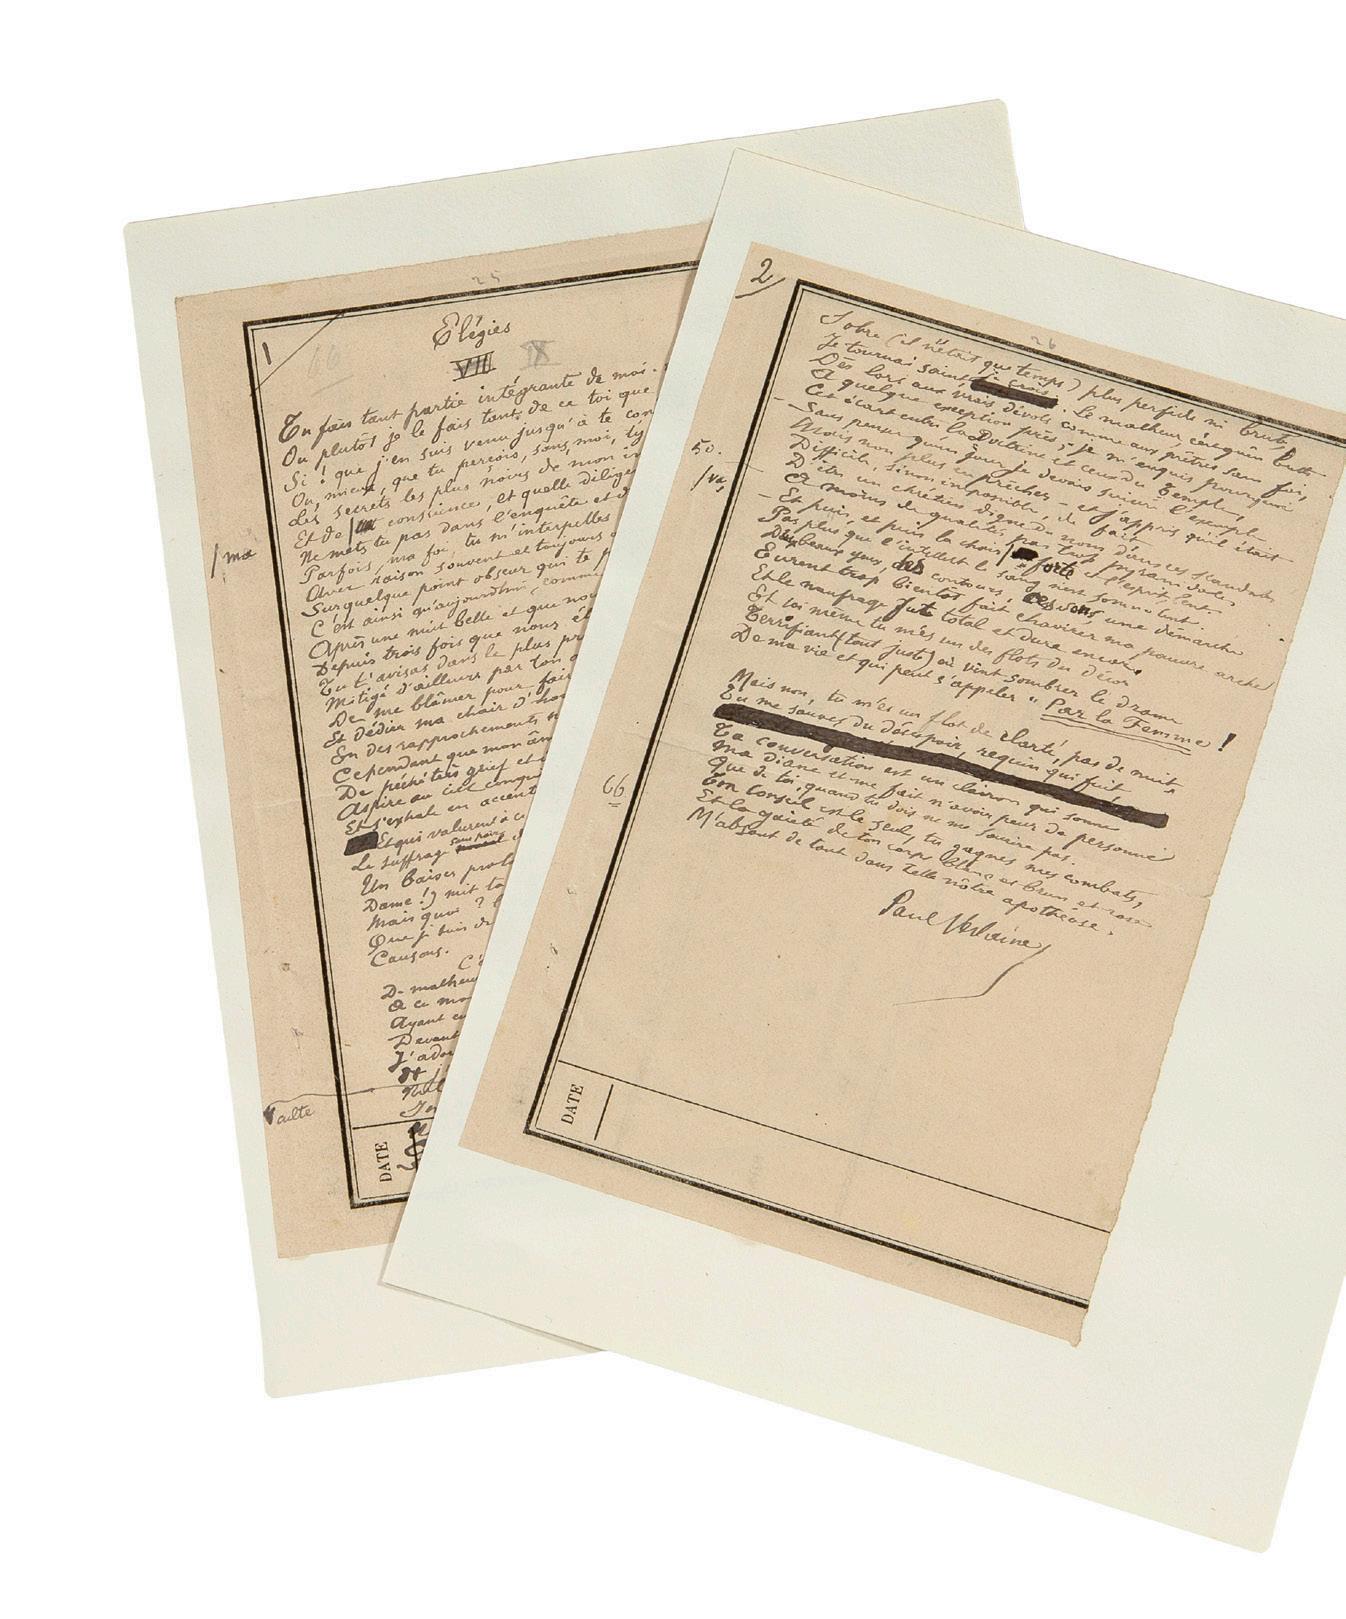 25
1
66
Elégies
VIII IX
Tu fais tant partie intégrante de moi-
Ou plutôt je le fais tant de ce toi que
Si ! que j'en suis venu jusqu'à te con
Ou, mieux, que tu perçois, sans moi, ty
Les secrets les plus noirs de mon in
Et de conscience, et quelle dilige
/ ma
Ne mets tu pas dans l'enquête et d
Parfois, ma foi, tu m'interpelles
Avec raison souvent et toujours
Sur quelque point obscur qui te p
C'est ainsi qu'aujourd'hui, comme
Après une nuit belle et que nou
Depuis trois fois que nous ét
Tu t'avisas dans le plus pr
Mitigé d'ailleurs par ton
De me blâmer pour fair
Et dédier ma chair d'ho
En des rapprochements
Cependant que mon âm
De péché très grief et
Aspire au ciel conqu
Et s'exhale en accent
Et qui valurent à ce
Le suffrage
Un baiser prol
Dame !) mit ta
Mais quoi ? l
Que je buis de
Causons.
C'e
De malheu
A ce mo
Ayant eu
Devant
J'ador
Et
DATE
2
26
Sobre (il n'était que temps) plus perfide ni brutal,
Je tournai saint, je crois. Le malheur c'est qu'en butte
Dès lors aux vrais dévots comme aux prêtres sans foi,
A quelque exception près, je m'enquis pourquoi
Cet écart entre la Doctrine et ceux du Temple,
- Sans penser qu'un jour je devais suivre l'exemple
50.
Mais non plus en prêches - et j'appris qu'il était
Difficile, sinon impossible, de fait
/ va,
D'être un chrétien digne du nom d'ences scandales
A moins de qualités par trop pyramidales
- Et puis, et puis la chair forte et l'esprit lent
Pas plus que l'intellect le sang n'est somnolent.
De beaux yeux, des contours, ces dons, une démarche
Eurent trop bientôt fait chavirer ma pauvre arche
Et le naufrage fut total et dure encor.
Et toi même tu m'es un des flots du décor
Terrifiant (tout juste) où vint sombrer le drame
De ma vie et qui peut s'appeler "Par la Femme" !
Mais non, tu m'es un flot de clarté, pas de nuit
Tu me sauves du désespoir, requin qui fuit
Ta conversation est un clairon qui sonne
66.
Ma diane et me fait n'avoir peur de personne
Que de toi, quand tu dois ne me sourire pas.
Ton conseil est le seul, tu gagnes mes combats,
Et la gaieté de ton corps blanc et brun et rose
M'absout de tout dans telle nôtre apothéose.
Paul Verlaine
DATE